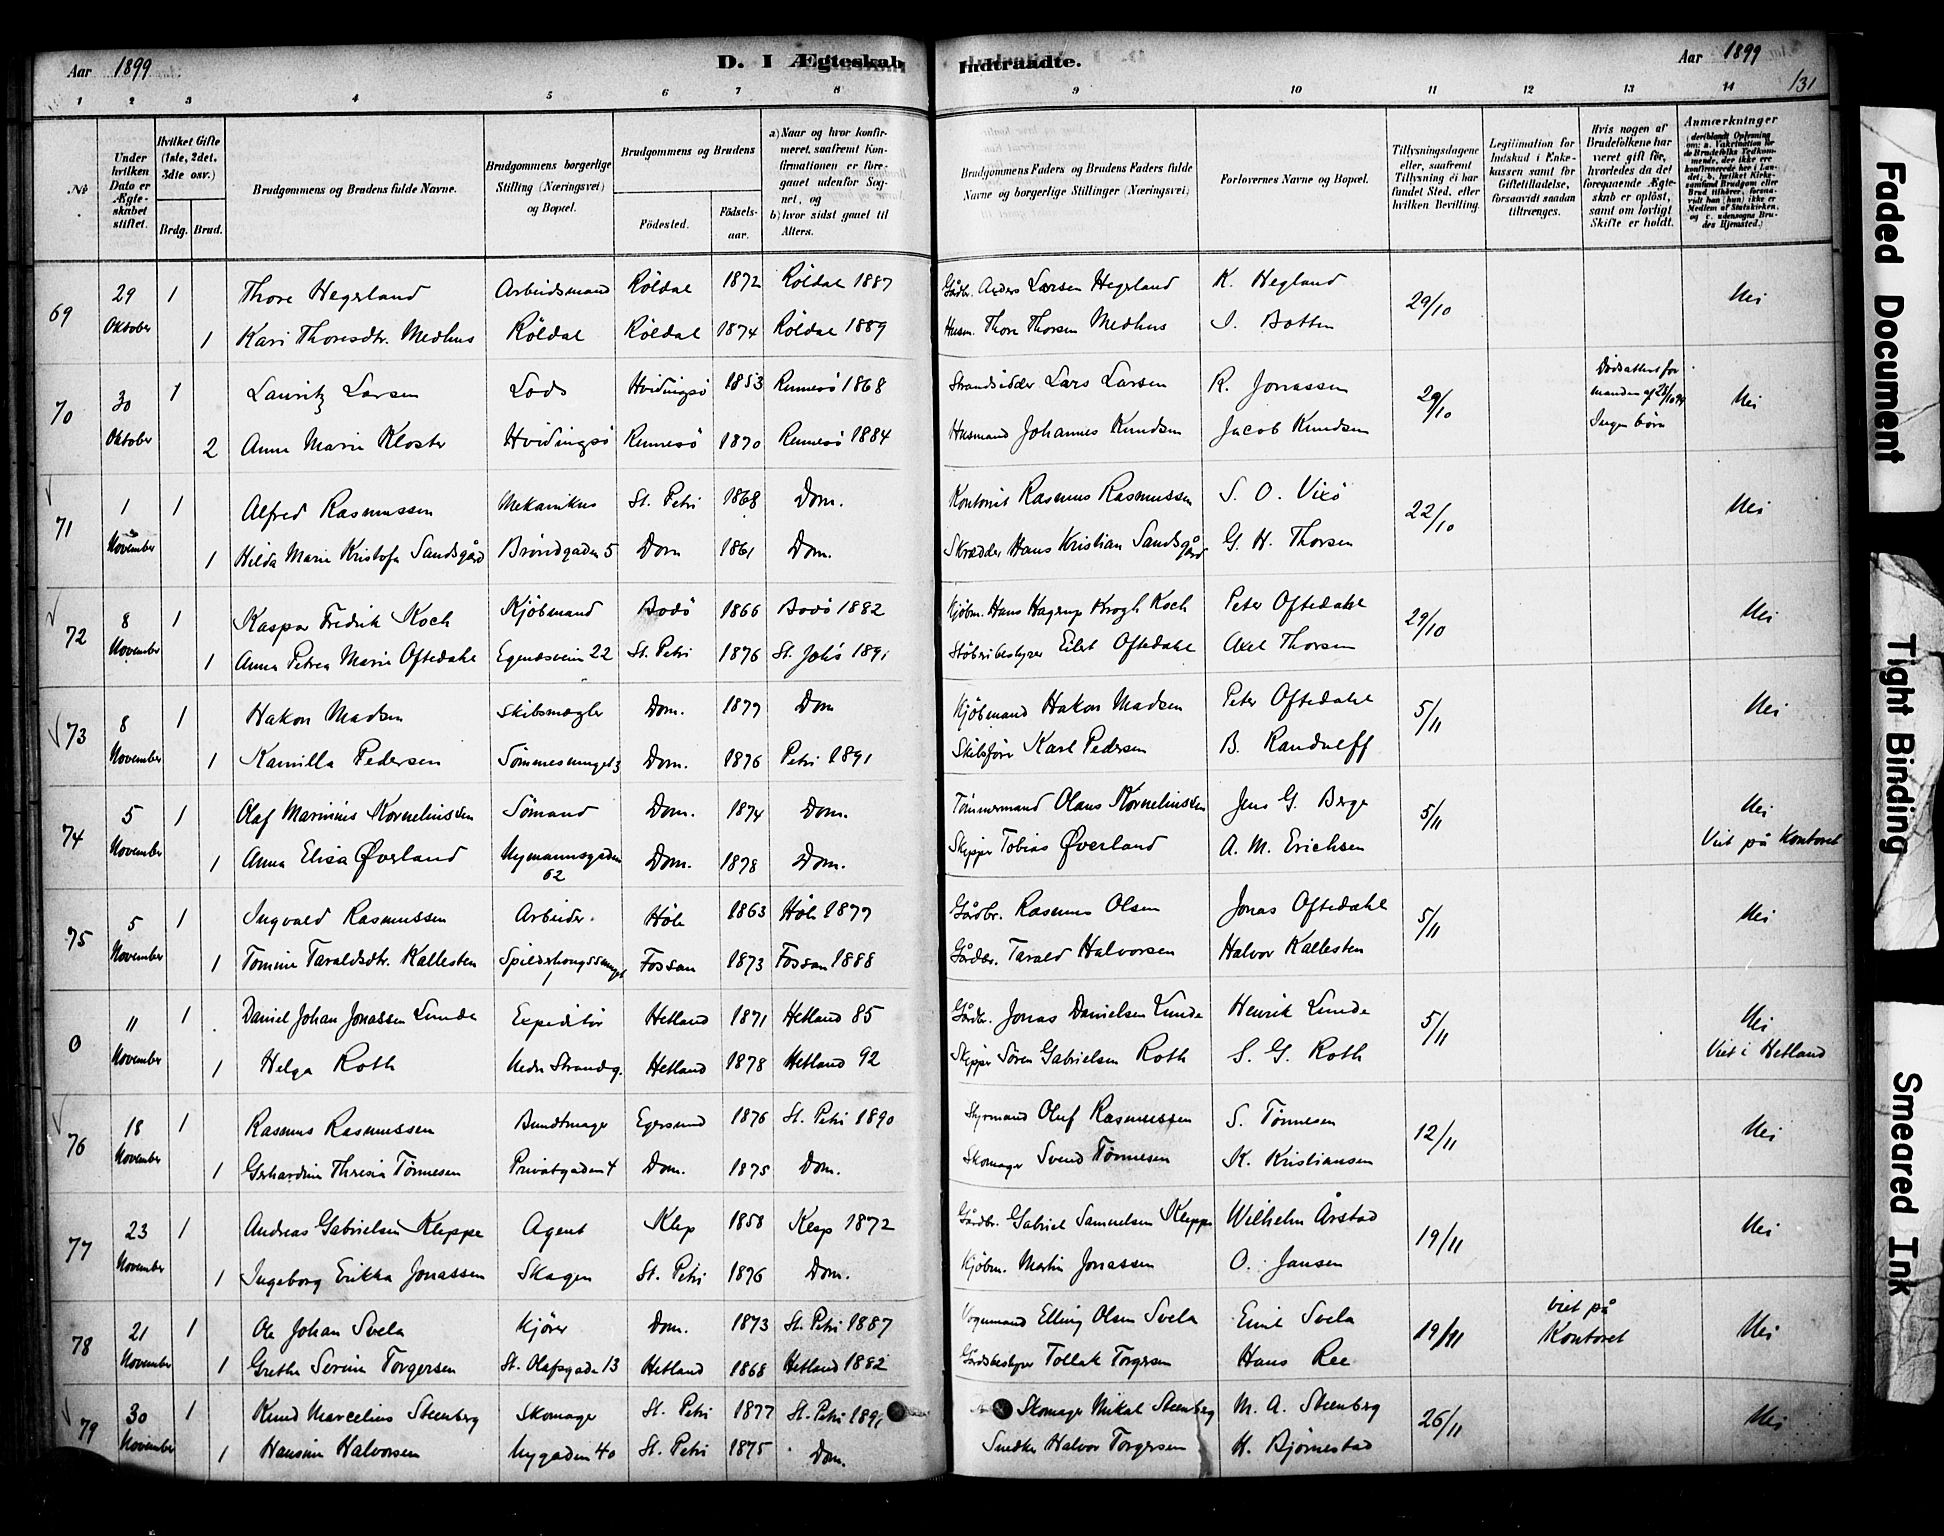 Aar 1899 D. I Ægteskab Indtraadte. Aar 1899
131
1 2 3 4 5 6 7 8 9 10 11 12 13 14
№
Under hvilken Dato er Ægteskabet stiftet.
Hvilket Gifte (1ste, 2det, 3die osv.)
Brdg. Brud.
Brudgommens og Brudens fulde Navne.
Brudgommens borgerlige Stilling (Næringsvei) og Bopæl.
Brudgommens og Brudens
Födested. Födsels-aar.
a) Naar og hvor konfirmeret, saafremt Konfirmationen er foregaaet udenfor Sognet, og
b) hvor sidst gaaet til Alters.
Brudgommens Faders og Brudens Faders fulde Navne og borgerlige Stillinger (Næringsvei)
Forlovernes Navne og Bopæl.
Tillysningsdagene eller, saafremt Tillysning ei har fundet Sted, efter hvilken Bevilling.
Legitimation for Indskud i Enkekassen samt for Giftetilladelse, forsaavidt saadan tiltrænges.
Hvis nogen af Brudefolkene har været gift för, hvorledes da det foregaaende Ægteskab er oplöst, samt om lovligt Skifte er holdt.
Anmærkninger
69 29 Oktober 1 Thore Hegerland Arbeidsmand Röldal 1872 Röldal 1887 Gårdbr. Anders Larsen Hegerland K. Hegland 29/10 Nei
1 Kari Thoresdtr. Medhus Röldal Röldal 1874 Röldal 1889 Husm. Thore Thorsen Medhus I. Botten
70 30 Oktober 1 Lauritz Larsen Lods Hvidingsö 1853 Rennesö 1868 Strandsidder Lars Larsen R. Jonassen 29/10 Dödsattest for manden af 28/10 94 Ingen börn Nei
2 Anna Marie Kloster Hvidingsö Rennesö 1870 Rennesö 1884 Husmand Johannes Knudsen Jacob Knudsen
71 1 November 1 Alfred Rasmussen Mekanikus St. Petri 1868 Dom. Kontorist Rasmus Rasmussen S. O. Vixö 22/10 Nei
1 Hilda Marie Kristofa Sandsgård Bröndgaden 5 Dom 1861 Dom. Skrædder Hans Kristian Sandsgård G. H. Thorsen
72 8 November 1 Kaspar Fredrik Koch Kjöbmand Bodö 1866 Bodö 1882 Kjöbm. Hans Hagerup Krogh Koch Peter Oftedahl 29/10 Nei
1 Anna Petrea Marie Oftedahl Egenæsveien 22 St. Petri 1876 St. Johs 1891 Stöberibestyrer Eilert Oftedahl Axel Thorsen
73 8 November 1 Hakon Madsen Skibsmægler Dom. 1879 Dom Kjöbmand Hakon Madsen Peter Oftedahl 5/11 Nei
1 Kamilla Pedersen Sömmesmuget 3 Dom. 1876 Petri 1891 Skibsförer Karl Pedersen B. Randulff
74 5 November 1 Olaf Marinius Korneliussen Sömand Dom. 1874 Dom. Tömmermand Olaus Korneliussen Jens G. Berge 5/11 Nei
1 Anna Elisa Øverland Nymannsgaden 62 Dom. 1878 Dom. Skipper Tobias Øverland A. M. Erichsen Viet på Kontoret
75 5 November 1 Ingvald Rasmussen Arbeider. Höle 1863 Höle 1877 Gårdbr. Rasmus Olsen Jonas Oftedahl 5/11 Nei
1 Tomine Taraldsdtr. Kallesten Spilderhougssmuget Fossan 1873 Fossan 1888 Gårdbr. Tarald Halvorsen Halvor Kallesten
0 11 November 1 Daniel Johan Jonassen Lunde Expeditör Hetland 1871 Hetland 85 Gårdbr. Jonas Danielsen Lunde Henrik Lunde 5/11 Nei
1 Helga Roth Nedre Strandg. Hetland 1878 Hetland 92 Skipper Sören Gabrielsen Roth S. G. Roth Viet i Hetland
76 18 November 1 Rasmus Rasmussen Bundtmager Egersund 1876 St. Petri 1890 Styrmand Oluf Rasmussen S. Tönnesen 12/11 Nei
1 Gerhardine Thresia Tönnesen Privatgaden 4 Dom. 1875 Dom. Skomager Svend Tönnesen K. Kristiansen
77 23 November 1 Andreas Gabrielsen Kleppe Agent Klep 1858 Klep 1872 Gårdbr. Gabriel Samuelsen Kleppe Wilhelm Årstad 19/11 Nei
1 Ingeborg Erikka Jonassen Skagen St. Petri 1876 Dom. Kjöbm. Martin Jonassen O. Jansen
78 21 November 1 Ole Johan Svela Kjörer Dom. 1873 St. Petri 1887 Vognmand Elling Olsen Svela Emil Svela 19/11 Viet på Kontoret Nei
1 Grethe Serine Torgersen St. Olafsgade 13 Hetland 1868 Hetland 1882 Gårdsbestyrer Tollak Torgersen Hans Ree
79 30 November 1 Knud Marcelius Steenberg Skomager St. Petri 1877 St. Petri 1891 Skomager Mikal Steenberg M. A. Steenberg 26/11 Nei
1 Hansine Halvorsen Nygaden 40 St. Petri 1875 Dom. Snedker Halvor Torgersen H. Bjørnestad
Faded Document
Tight Binding
Smeared Ink